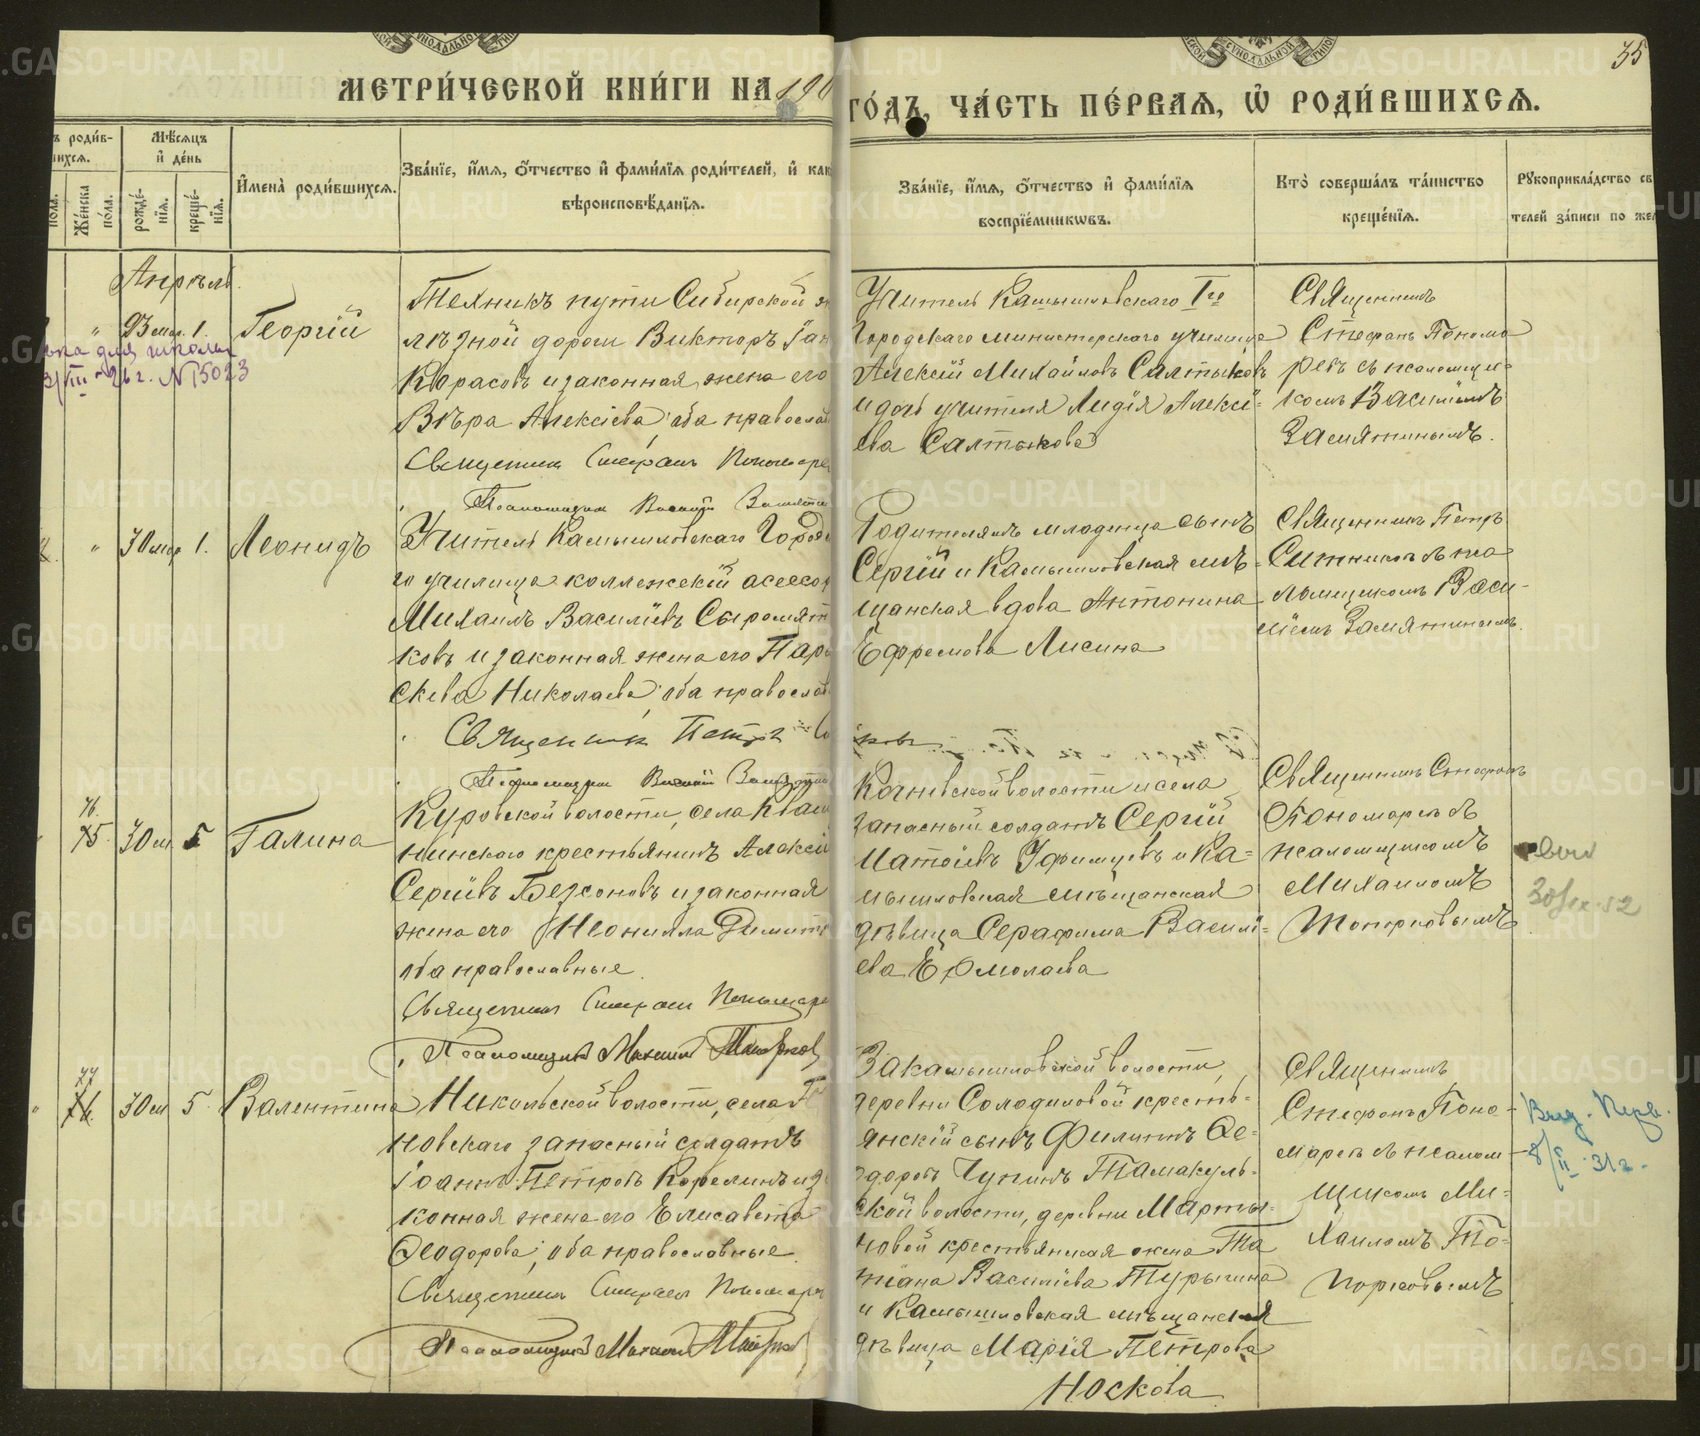 МЕТРИ́ЧЕСКОЙ КНИ́ГИ НА 190
ГО́ДЪ, ЧА́СТЬ ПЕ́РВАЯ, Ѡ҆ РОДИ́ВШИХСЯ.
35
Мѣ́сяцъ и҆ де́нь
Же́нска по́ла.
рожде́нїя.
креще́нїя.
И҆мена̀ роди́вшихся.
Зва́нїе, и҆́мя, ѻ҆́тчество и҆ фами́лїя роди́телей, и҆ как
вѣроисповѣ́данїя.
Зва́нїе, и҆́мя, ѻ҆́тчество и҆ фами́лїя
воспрїе́мникѡвъ.
Кто̀ соверша́лъ та́инство
креще́нїя.
Рꙋкоприкла́дство св
телей за́писи по жел
Апрѣль.
23 мар. 1.
Георгій
Техникъ пути Сибирской ж
лѣзной дороги Викторъ
и законная жена его
Вѣра Алексіева, оба православ
Священник Стефан Пономаре
Псаломщик Василий Замяти
Учитель Камышловскаго 1го
Городскаго министерскаго училища
Алексій Михайловъ Салтыковъ
и дочь учителя Лидія Алексі-
ева Салтыкова
Священникъ
Стефанъ Понома
ревъ съ псаломщи-
комъ Василіемъ
Замятинымъ.
для школы
26 г. № 15023
30 мар. 1.
Леонидъ
Учитель Камышловскаго Городс
го училища коллежскій асессор
Михаилъ Василіевъ Сыромят
ковъ и законная жена его Пара
скева Николаева, оба православ
Священник Петръ
Псаломщик Василий Замятин
Родителямъ младенца сынъ
Сергій и Камышловская мѣ-
щанская вдова Антонина
Ефремова Лисина
Священникъ Петръ
Ситниковъ съ пса
ломщикомъ Васи-
ліемъ Замятинымъ.
76.
75.
30 м
5
Галина
Куровской волости, села Кваш
нинскаго крестьянинъ Алексій
Сергіевъ Безсоновъ и законная
жена его Неонилла Димитр
оба православные.
Священник Стефан Пономаре
Псаломщик Михаил Топорков
Кочневской волости и села
запасный солдатъ Сергій
Уфимцевъ и Ка-
мышловская мѣщанская
дѣвица Серафима Василі-
ева Ермолаева
Священникъ Стефанъ
Пономаревъ съ
псаломщикомъ
Михаиломъ
Топорковымъ
77
76.
30 м
5
Валентина
Никольской волости, села
новскаго запасный солдатъ
Іоаннъ Петровъ Корелинъ и за
конная жена его Елисавета
Ѳеодорова, оба православные.
Священник Стефан Пономаре
Псаломщик Михаил Топорков
Закамышловской волости,
деревни Солодиловой кресть-
янскій сынъ Филиппъ Ѳе-
одоровъ Чупинъ Тамакуль-
ской волости, деревни Марты-
новой крестьянская жена Та
тіана Василіева Турыгина
и Камышловская мѣщанская
дѣвица Марія Петрова
Носкова
Священникъ
Стефанъ Поно-
маревъ съ псалом-
щикомъ Ми-
хаиломъ То-
порковымъ
Выд.
8/II 31 г.